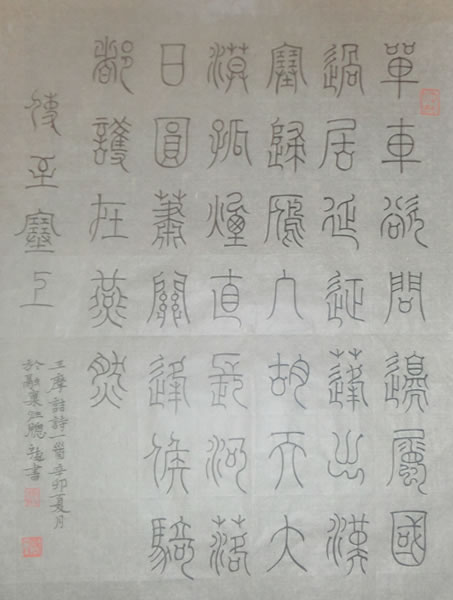 單車欲問邊屬國
過居延征蓬出漢
塞歸鴈入胡天大
漠孤煙直長河落
日圓蕭關逢候騎
都護在燕然
使至塞上
王摩詰詩一首辛卯夏月
於書